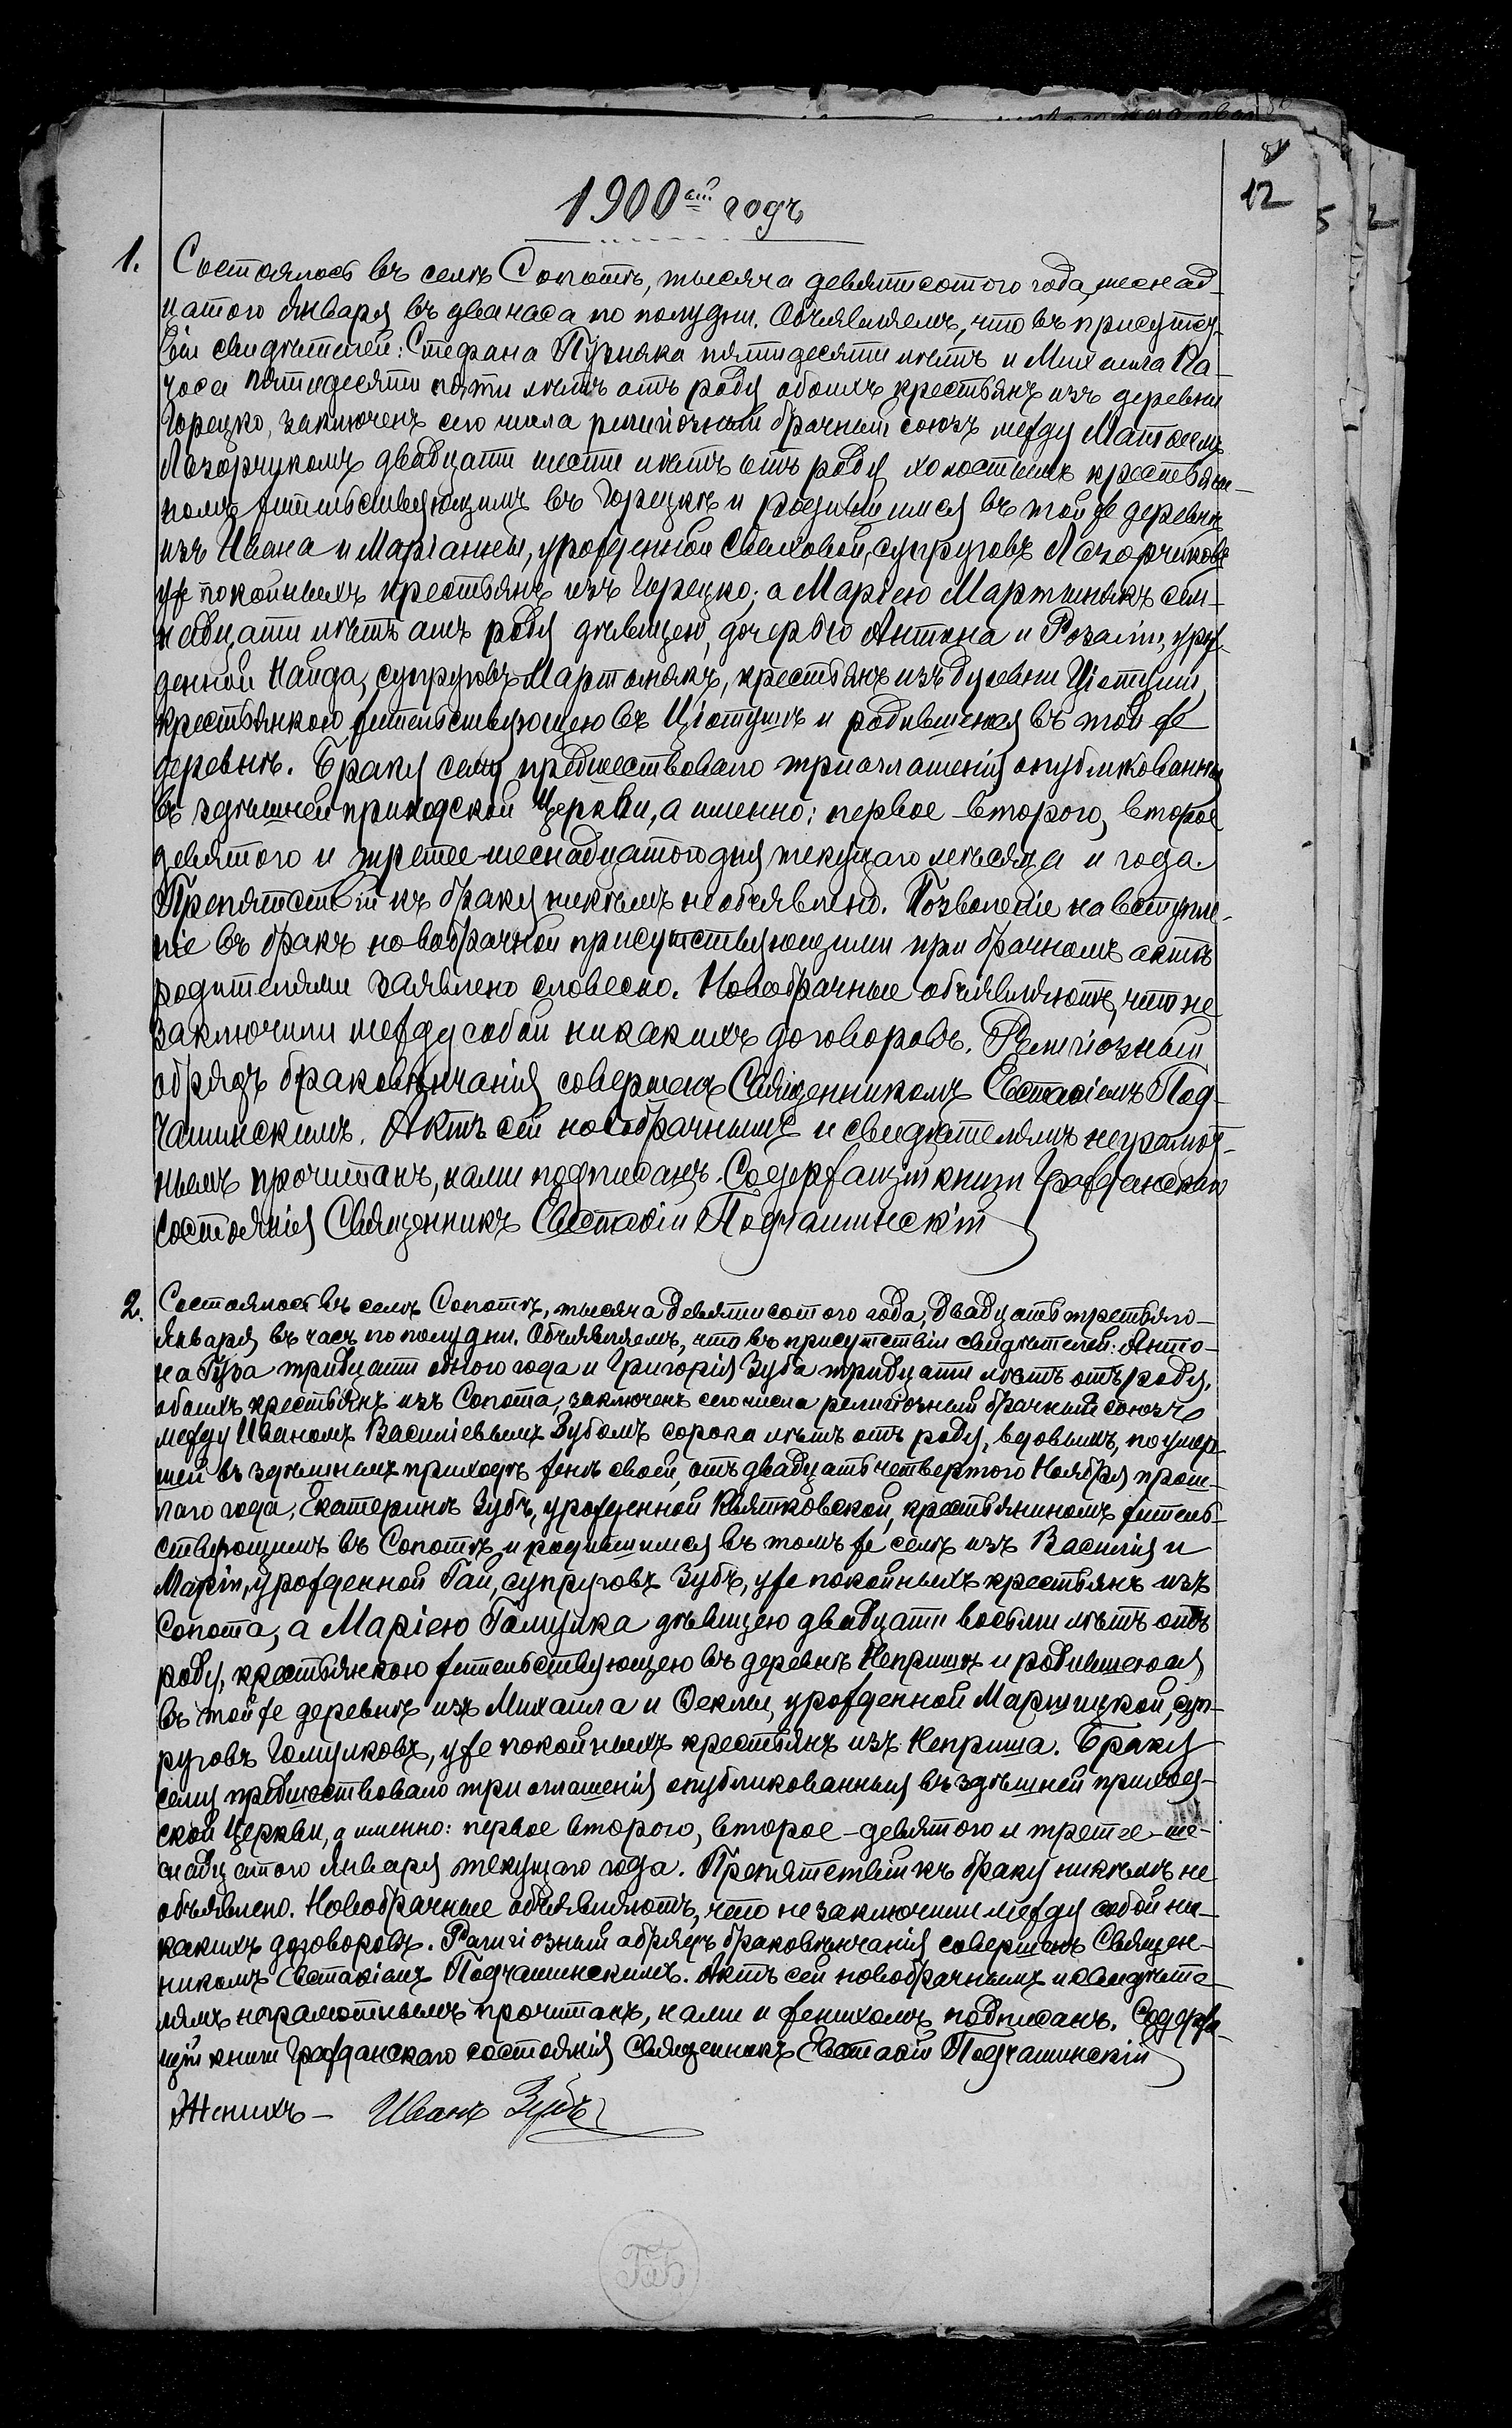 81
12
1900ый годъ
1. Состоялось въ селѣ Сопотѣ, тысяча девятисотого года, шеснад-
цатого Января въ два часа по полудни. Объявляемъ, что въ присутст-
віи свидѣтелей: Стефана Пузняка пятидесяти лѣтъ и Михаила Па-
чоса пятидесяти пяти лѣтъ отъ роду обоихъ крестьянъ изъ деревни
Горецко, заключенъ сего числа религіозный брачный союзъ между Матвеемъ
Лазорчукомъ двадцати шести лѣтъ отъ роду холостымъ крестьяни-
номъ жительствующимъ въ Горецкѣ и родившимся въ той же деревнѣ
изъ Ивана и Маріанны, урожденной Сваховой, супруговъ Лазорчиковъ
уже покойныхъ крестьянъ изъ Горецко; а Маріею Мартынякъ сем-
надцати лѣтъ отъ роду дѣвицею, дочерью Антона и Розаліи, урож-
денной Найда, супруговъ Мартынякъ, крестьянъ изъ деревни Ціотуши,
крестьянкою жительствующею въ Ціотушѣ и родившеюся въ той же
деревнѣ. Браку сему предшествовало три оглашенія опубликованныя
въ здѣшней приходской Церкви, а именно: первое второго, второе
девятого и третее шеснадцатого дня текущаго мѣсяца и года.
Препятствій къ браку никѣмъ не объявлено. Позволеніе на вступле-
ніе въ бракъ новобрачной присутствующими при брачномъ актѣ
родителями заявлено словесно. Новобрачные объявляютъ, что не
заключили между собой никакихъ договоровъ. Религіозный
обрядъ браковѣнчанія совершенъ Священникомъ Евстаѳіемъ Под-
чашинскимъ. Актъ сей новобрачнымъ и свидѣтелямъ неграмот-
нымъ прочитанъ, нами подписанъ. Содержащій книги Гражданскаго
состоянія Священникъ Евстаѳій Подчашинскій
2. Состоялось въ селѣ Сопотѣ, тысяча девятисотого года, двадцать третьяго
Января въ часъ по полудни. Объявляемъ, что въ присутствіи свидѣтелей: Анто-
на Гура тридцати одного года и Григорія Зуба тридцати лѣтъ отъ роду,
обоихъ крестьянъ изъ Сопота, заключенъ сего числа религіозный брачный союзъ
между Иваномъ Василіевымъ Зубомъ сорока лѣтъ отъ роду, вдовымъ, по умер-
шей въ здѣшнемъ приходѣ женѣ своей, отъ двадцать четвертого Ноября прош-
лаго года, Екатеринѣ Зубъ, урожденной Квятковской, крестьяниномъ житель-
ствующимъ въ Сопотѣ и родившимся въ томъ же селѣ изъ Василія и
Маріи, урожденной Гай, супруговъ Зубъ, уже покойныхъ крестьянъ изъ
Сопота, а Маріею Голушка дѣвицею двадцати восьми лѣтъ отъ
роду, крестьянкою жительствующею въ деревнѣ Непришѣ и родившеюся
въ той же деревнѣ изъ Михаила и Ѳеклы, урожденной Маршицкой, суп-
руговъ Голушковъ, уже покойныхъ крестьянъ изъ Неприша. Браку
сему предшествовало три оглашенія опубликованныя въ здѣшней приход-
ской Церкви, а именно: первое второго, второе - девятого и третее - ше-
снадцатого Января текущаго года. Препятствій къ браку никѣмъ не
объявлено. Новобрачные объявляютъ, что не заключили между собой ни-
какихъ договоровъ. Религіозный обрядъ браковѣнчанія совершенъ Священ-
никомъ Евстаѳіемъ Подчашинскимъ. Актъ сей новобрачнымъ и свидѣте-
лямъ неграмотнымъ прочитанъ, нами и женихомъ подписанъ. Содержа-
щій книги Гражданскаго состоянія Священникъ Евстаѳій Подчашинскій
Женихъ - Иванъ Зубъ